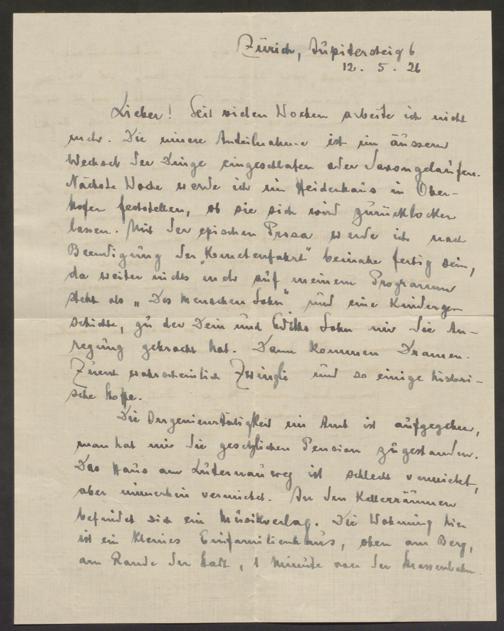 Zürich, Jupitersteig 6
12. 5. 26
Lieber! Seit vielen Wochen arbeite ich nicht
mehr. Die innere Anteilnahme ist im äussern
Wechsel der Dinge eingeschlafen oder davongelaufen.
Nächste Woche werde ich im Heidenhaus in Ober-
hofen feststellen, ob sie sich wird zurücklocken
lassen. Mit der epischen Prosa werde ich nach
Beendigung der " " beinahe fertig sein,
da weiter nichts mehr auf meinem Programm
steht als „Des Menschen Sohn" und eine Kinderge-
schichte, zu der Dein und Sohn mir die An-
regung gebracht hat. Dann kommen Dramen.
Zuerst wahrscheinlich Zwingli und so einige histori-
sche Stoffe.
Die im Amt ist aufgegeben,
man hat mir die gesetzlichen Pension zugestanden.
Das Haus am Luternauweg ist schlecht vermietet,
aber immerhin vermietet. In den Kellerräumen
befindet sich ein Musikverlag. Die Wohnung hier
ist ein kleines Einfamilienhaus, oben am Berg,
am Rande der Stadt, 1 Minute von der Strassenbahn